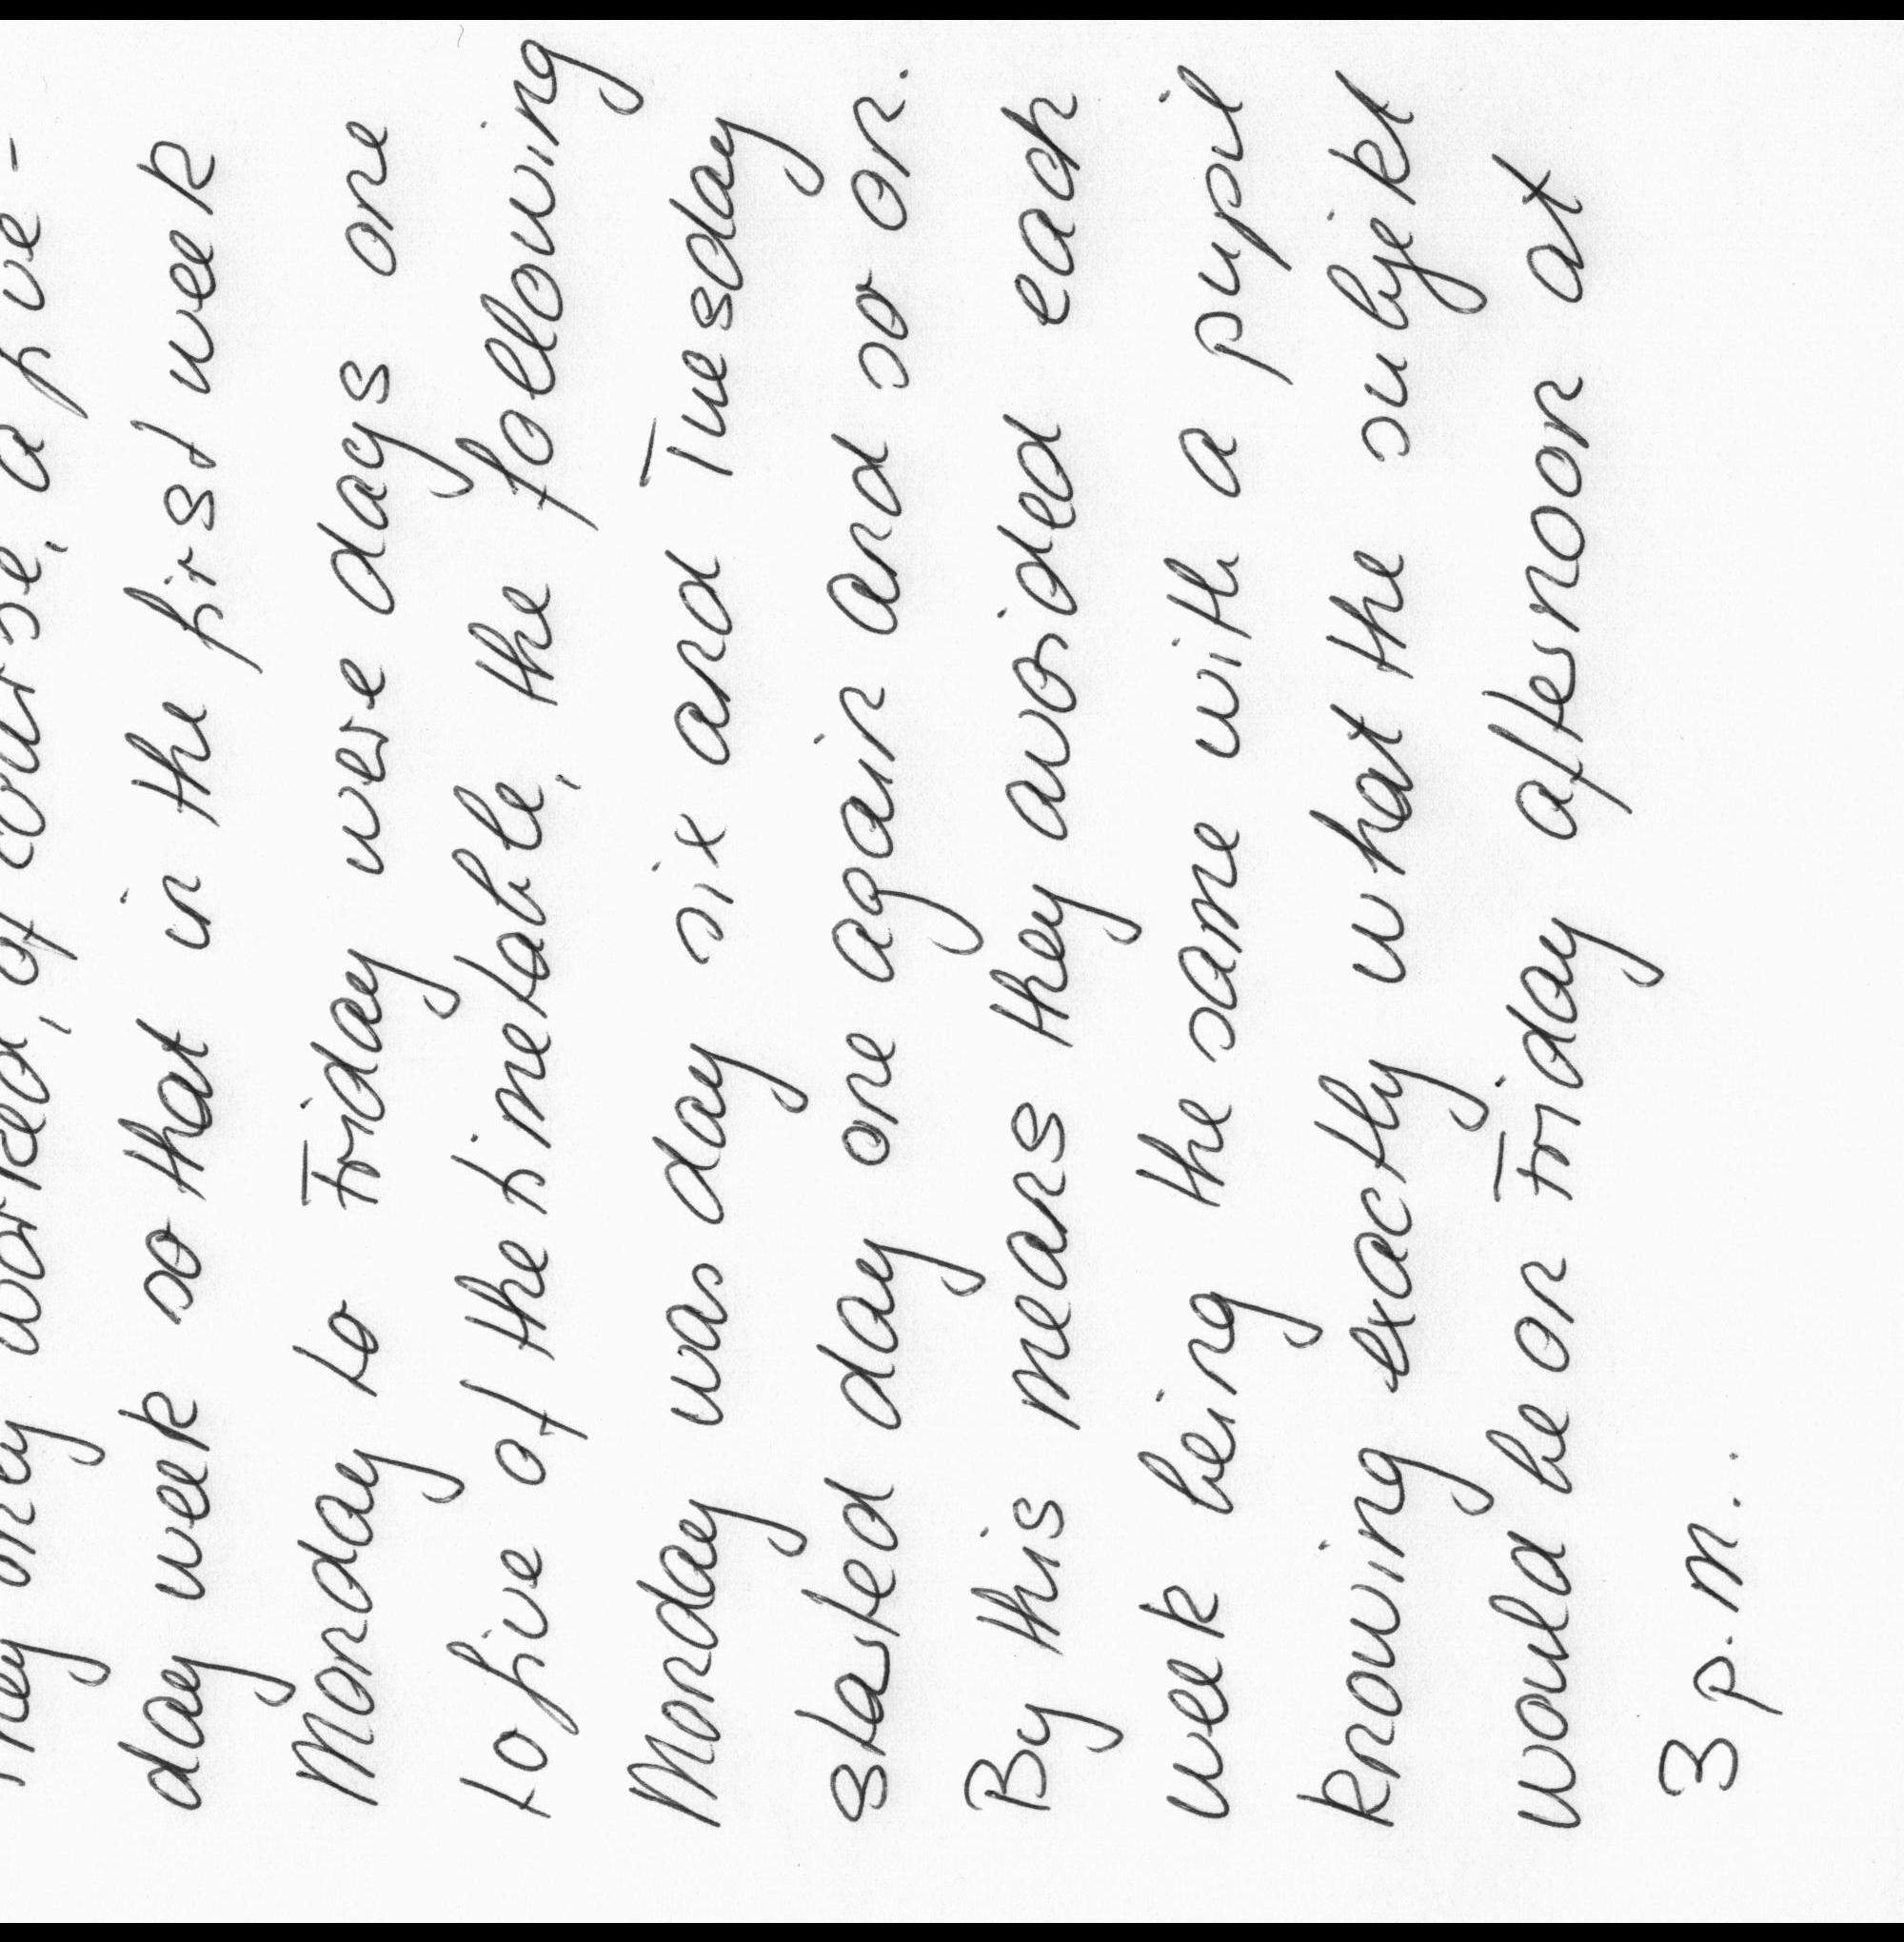 They only worked, of course, a five-
day week so that in the first week
Monday to Friday were days one
to five of the timetable, the following
Monday was day six and Tuesday
started day one again and so on.
By this means they avoided each
week being the same with a pupil
knowing exactly what the subjekt
would be on Friday afternoon at
3 p.m..